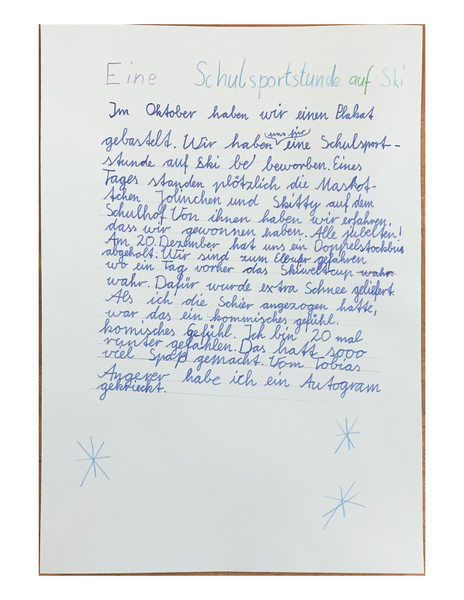 Eine Schulsportstunde auf Ski
Im Oktober haben wir einen Plakat
gebastelt. Wir haben uns für eine Schulsport-
stunde auf Ski be beworben. Eines
Tages standen plötzlich die Maskot-
tchen Jolinchen und Skitty auf dem
Schulhof. Von ihnen haben wir erfahren,
dass wir gewonnen haben. Alle jubelten!
Am 20. Dezember hat uns ein Doppelstockbus
abgeholt. Wir sind zum gefahren
wo ein Tag vorher das Skiweltcup wahr
wahr. Dafür wurde extra Schnee geliefert.
Als ich die Schier angezogen hatte,
war das ein kommisches gefühl.
komisches Gefühl. Ich bin 20 mal
runter gefahlen. Das hatt sooo
viel Spaß gemacht. Vom Tobias
Angerer habe ich ein Autogram
gekrieckt.